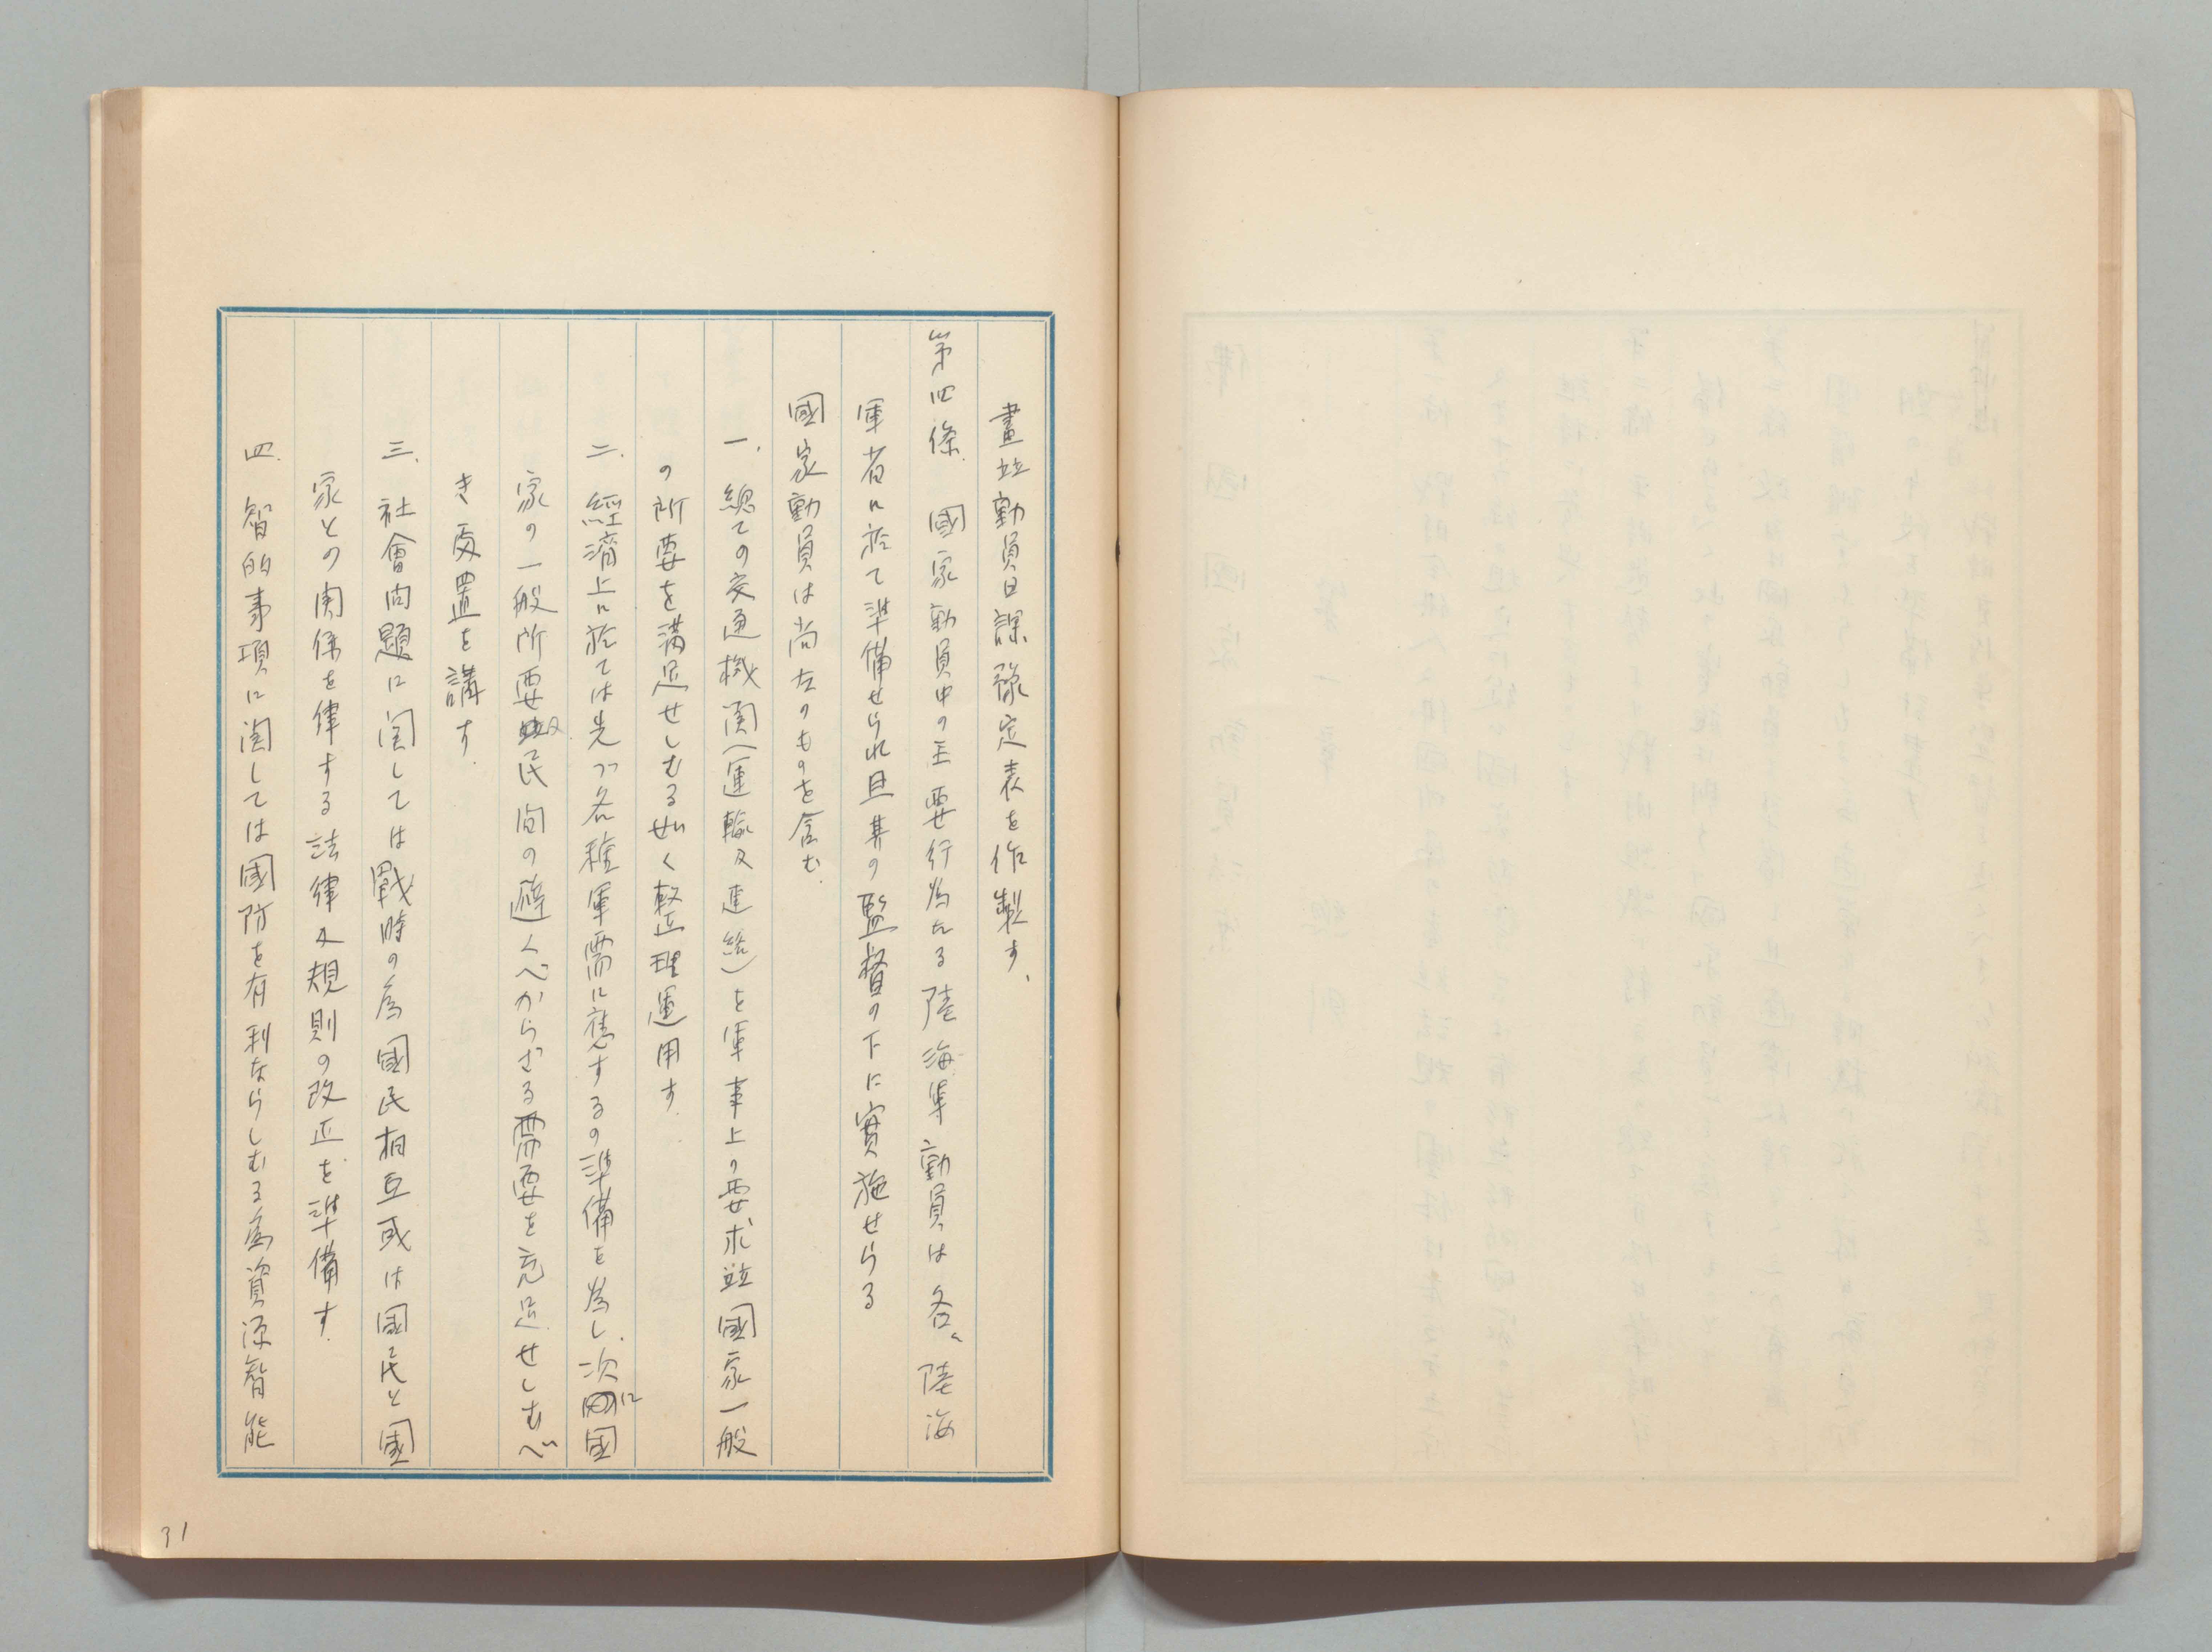 畫並動員日課豫定表を作製す、
第四條、國家動員中の主要行為たる陸海軍動員は各、陸海
軍省に於て準備せられ且其の監督の下に實施せらる
國家動員は尚左のものを含む、
一、總ての交通機関(運輸及連絡)を軍事上の要求並國家一般
の所要を満足せしむる如く整理運用す、
二、經濟上に於ては先づ各種軍需に應するの準備を為し、次に國
家の一般所要及民间の避くべからざる需要を充足せしむべ
き處置を講す、
三、社會问題に関しては戰時の為國民相互或は國民と國
家との関係を律する法律及規則の改正を準備す、
四、智的事項に関しては國防を有利ならしむる為資源智能
31